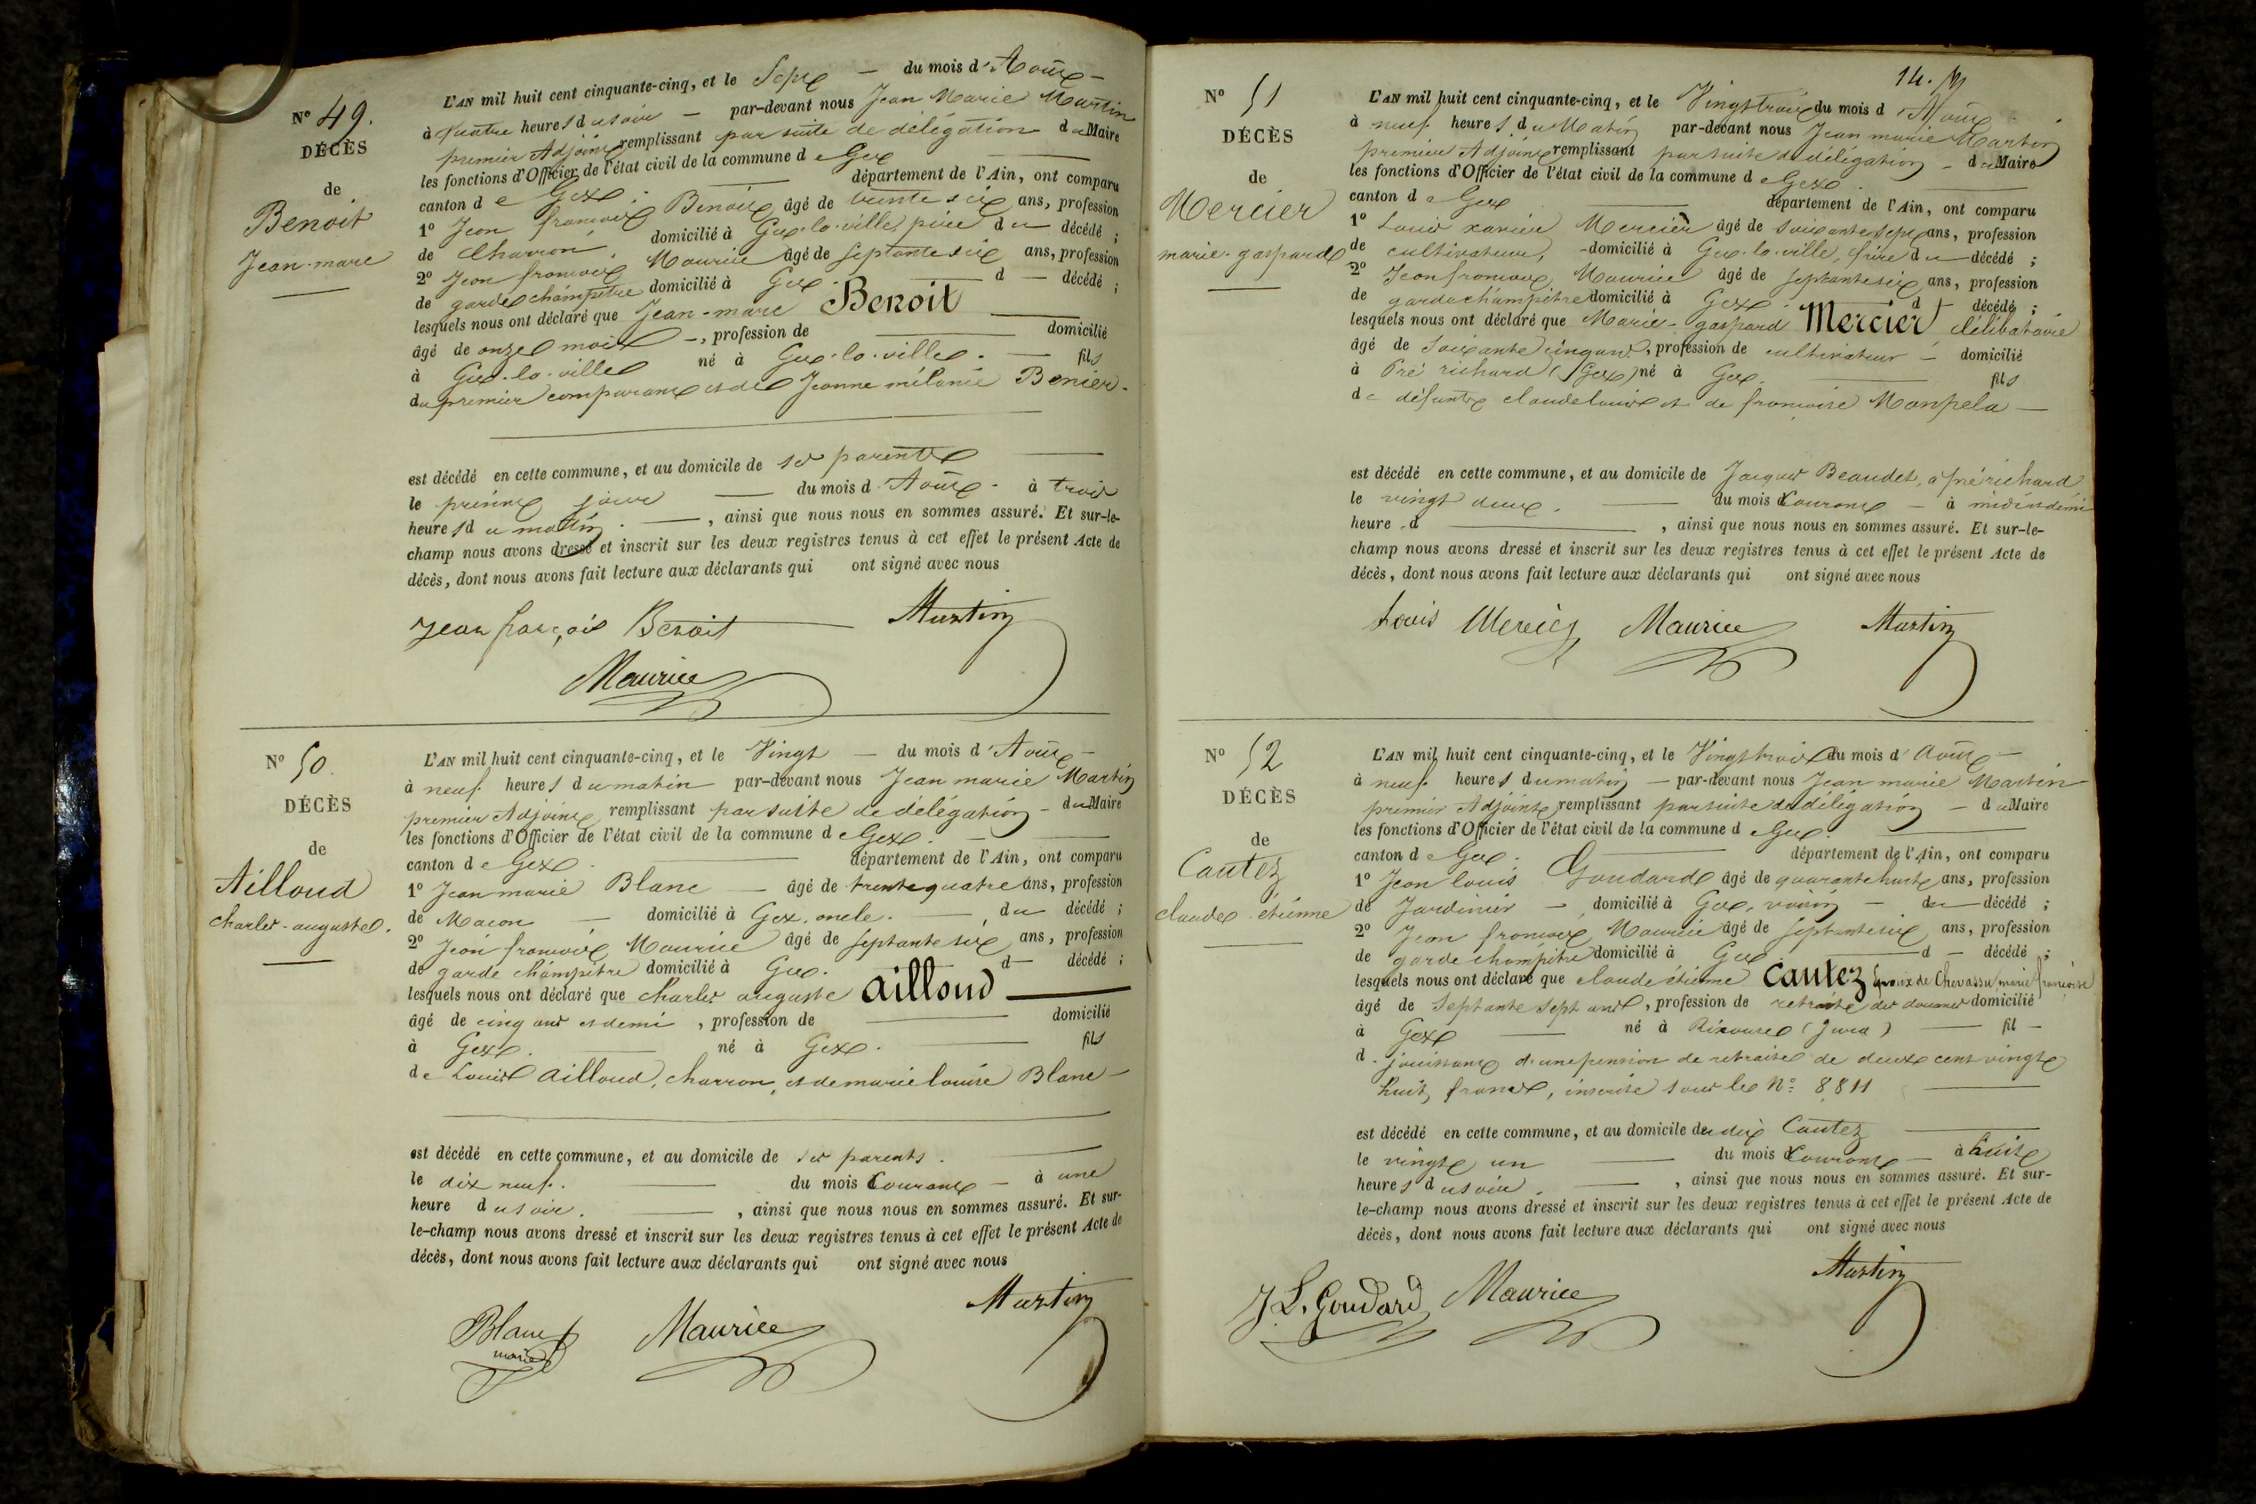 N° 49.
DÉCÈS
de
Benoit
Jean-marc
L'AN mil huit cent cinquante-cinq, et le Sept — du mois d'Août —
à quatre heures du soir — par-devant nous Jean Marie Martin
premier Adjoint remplissant par suite de délégation du Maire
les fonctions d'Officier de l'état civil de la commune de Gex —
canton de Gex. — département de l'Ain, ont comparu
1° Jean françois Benoit âgé de trente six ans, profession
de Charron, domicilié à Gex-la-ville, père du décédé ;
2° Jean françois Maurice âgé de septante six ans, profession
de garde champêtre domicilié à Gex. d — décédé ;
lesquels nous ont déclaré que Jean-marc Benoit —
âgé de onze mois —, profession de — domicilié
à Gex-la-ville né à Gex-la-ville. — fils
du premier comparant et de Jeanne mélanie Benier.
est décédé en cette commune, et au domicile de ses parents —
le même jour — du mois d'Août - à trois
heures du matin. —, ainsi que nous nous en sommes assuré. Et sur-le-
champ nous avons dressé et inscrit sur les deux registres tenus à cet effet le présent Acte de
décès, dont nous avons fait lecture aux déclarants qui ont signé avec nous
Jean françois Benoit Martin
Maurice
N° 50.
DÉCÈS
de
Ailloud
charles-auguste.
L'AN mil huit cent cinquante-cinq, et le Vingt — du mois d'Août —
à neuf heures du matin par-devant nous Jean marie Martin
premier Adjoint remplissant par suite de délégation - du Maire
les fonctions d'Officier de l'état civil de la commune de Gex. —
canton de Gex. — département de l'Ain, ont comparu
1° Jean marie Blanc — âgé de trente quatre ans, profession
de Maçon — domicilié à Gex, oncle. — du décédé ;
2° Jean françois Maurice âgé de septante six ans, profession
de garde champêtre domicilié à Gex. d — décédé ;
lesquels nous ont déclaré que charles auguste ailloud —
âgé de cinq ans et demi, profession de — domicilié
à Gex. — né à Gex. — fils
de Louis Ailloud, charron, et de marie louise Blanc —
est décédé en cette commune, et au domicile de ses parents. —
le dix neuf. — du mois Courant — à une
heure du soir. —, ainsi que nous nous en sommes assuré. Et sur-
le-champ nous avons dressé et inscrit sur les deux registres tenus à cet effet le présent Acte de
décès, dont nous avons fait lecture aux déclarants qui ont signé avec nous
Blanc Maurice Martin
marie
14.
N° 51
DÉCÈS
de
Mercier
marie-gaspard
L'AN mil huit cent cinquante-cinq, et le Vingt trois du mois d'Août
à neuf heures du Matin par-devant nous Jean marie Martin
premier Adjoint remplissant par suite de délégation - du Maire
les fonctions d'Officier de l'état civil de la commune de Gex. —
canton de Gex — département de l'Ain, ont comparu
1° Louis xavier Mercier âgé de soixante sept ans, profession
de cultivateur, - domicilié à Gex-la-ville, frère du décédé ;
2° Jean françois Maurice âgé de septante six ans, profession
de garde champêtre domicilié à Gex. — d — décédé ;
lesquels nous ont déclaré que Marie-gaspard Mercier célibataire
âgé de soixante cinq ans, profession de cultivateur — domicilié
à Pré richard (Gex) né à Gex. — fils
de défunts claude louis et de françoise Monpela —
est décédé en cette commune, et au domicile de Jacques Beaudet, à pré richard
le vingt deux. — du mois Courant — à midi et demi
heure d —, ainsi que nous nous en sommes assuré. Et sur-le-
champ nous avons dressé et inscrit sur les deux registres tenus à cet effet le présent Acte de
décès, dont nous avons fait lecture aux déclarants qui ont signé avec nous
Louis Mercier Maurice Martin
N° 52
DÉCÈS
de
Cautez
claude-étienne
L'AN mil huit cent cinquante-cinq, et le Vingt trois du mois d'août —
à neuf heures du matin — par-devant nous Jean marie Martin
premier Adjoint remplissant par suite de délégation — du Maire
les fonctions d'Officier de l'état civil de la commune de Gex. —
canton de Gex. — département de l'Ain, ont comparu
1° Jean louis Goudard âgé de quarante huit ans, profession
de Jardinier — domicilié à Gex, voisin — du décédé ;
2° Jean françois Maurice âgé de septante six ans, profession
de garde champêtre domicilié à Gex — d — décédé ;
lesquels nous ont déclaré que claude étienne Cautez époux de Chevassu marie françoise
âgé de septante sept ans, profession de retraité des douanes domicilié
à Gex — né à Rixouse (Jura) — fil —
d. jouissant d'une pension de retraite de deux cent vingt
huit francs, inscrite sous le N° 8811 —
est décédé en cette commune, et au domicile du dit Cautez —
le vingt un — du mois Courant — à huit
heures du soir. —, ainsi que nous nous en sommes assuré. Et sur-
le-champ nous avons dressé et inscrit sur les deux registres tenus à cet effet le présent Acte de
décès, dont nous avons fait lecture aux déclarants qui ont signé avec nous
J. L. Goudard Maurice Martin